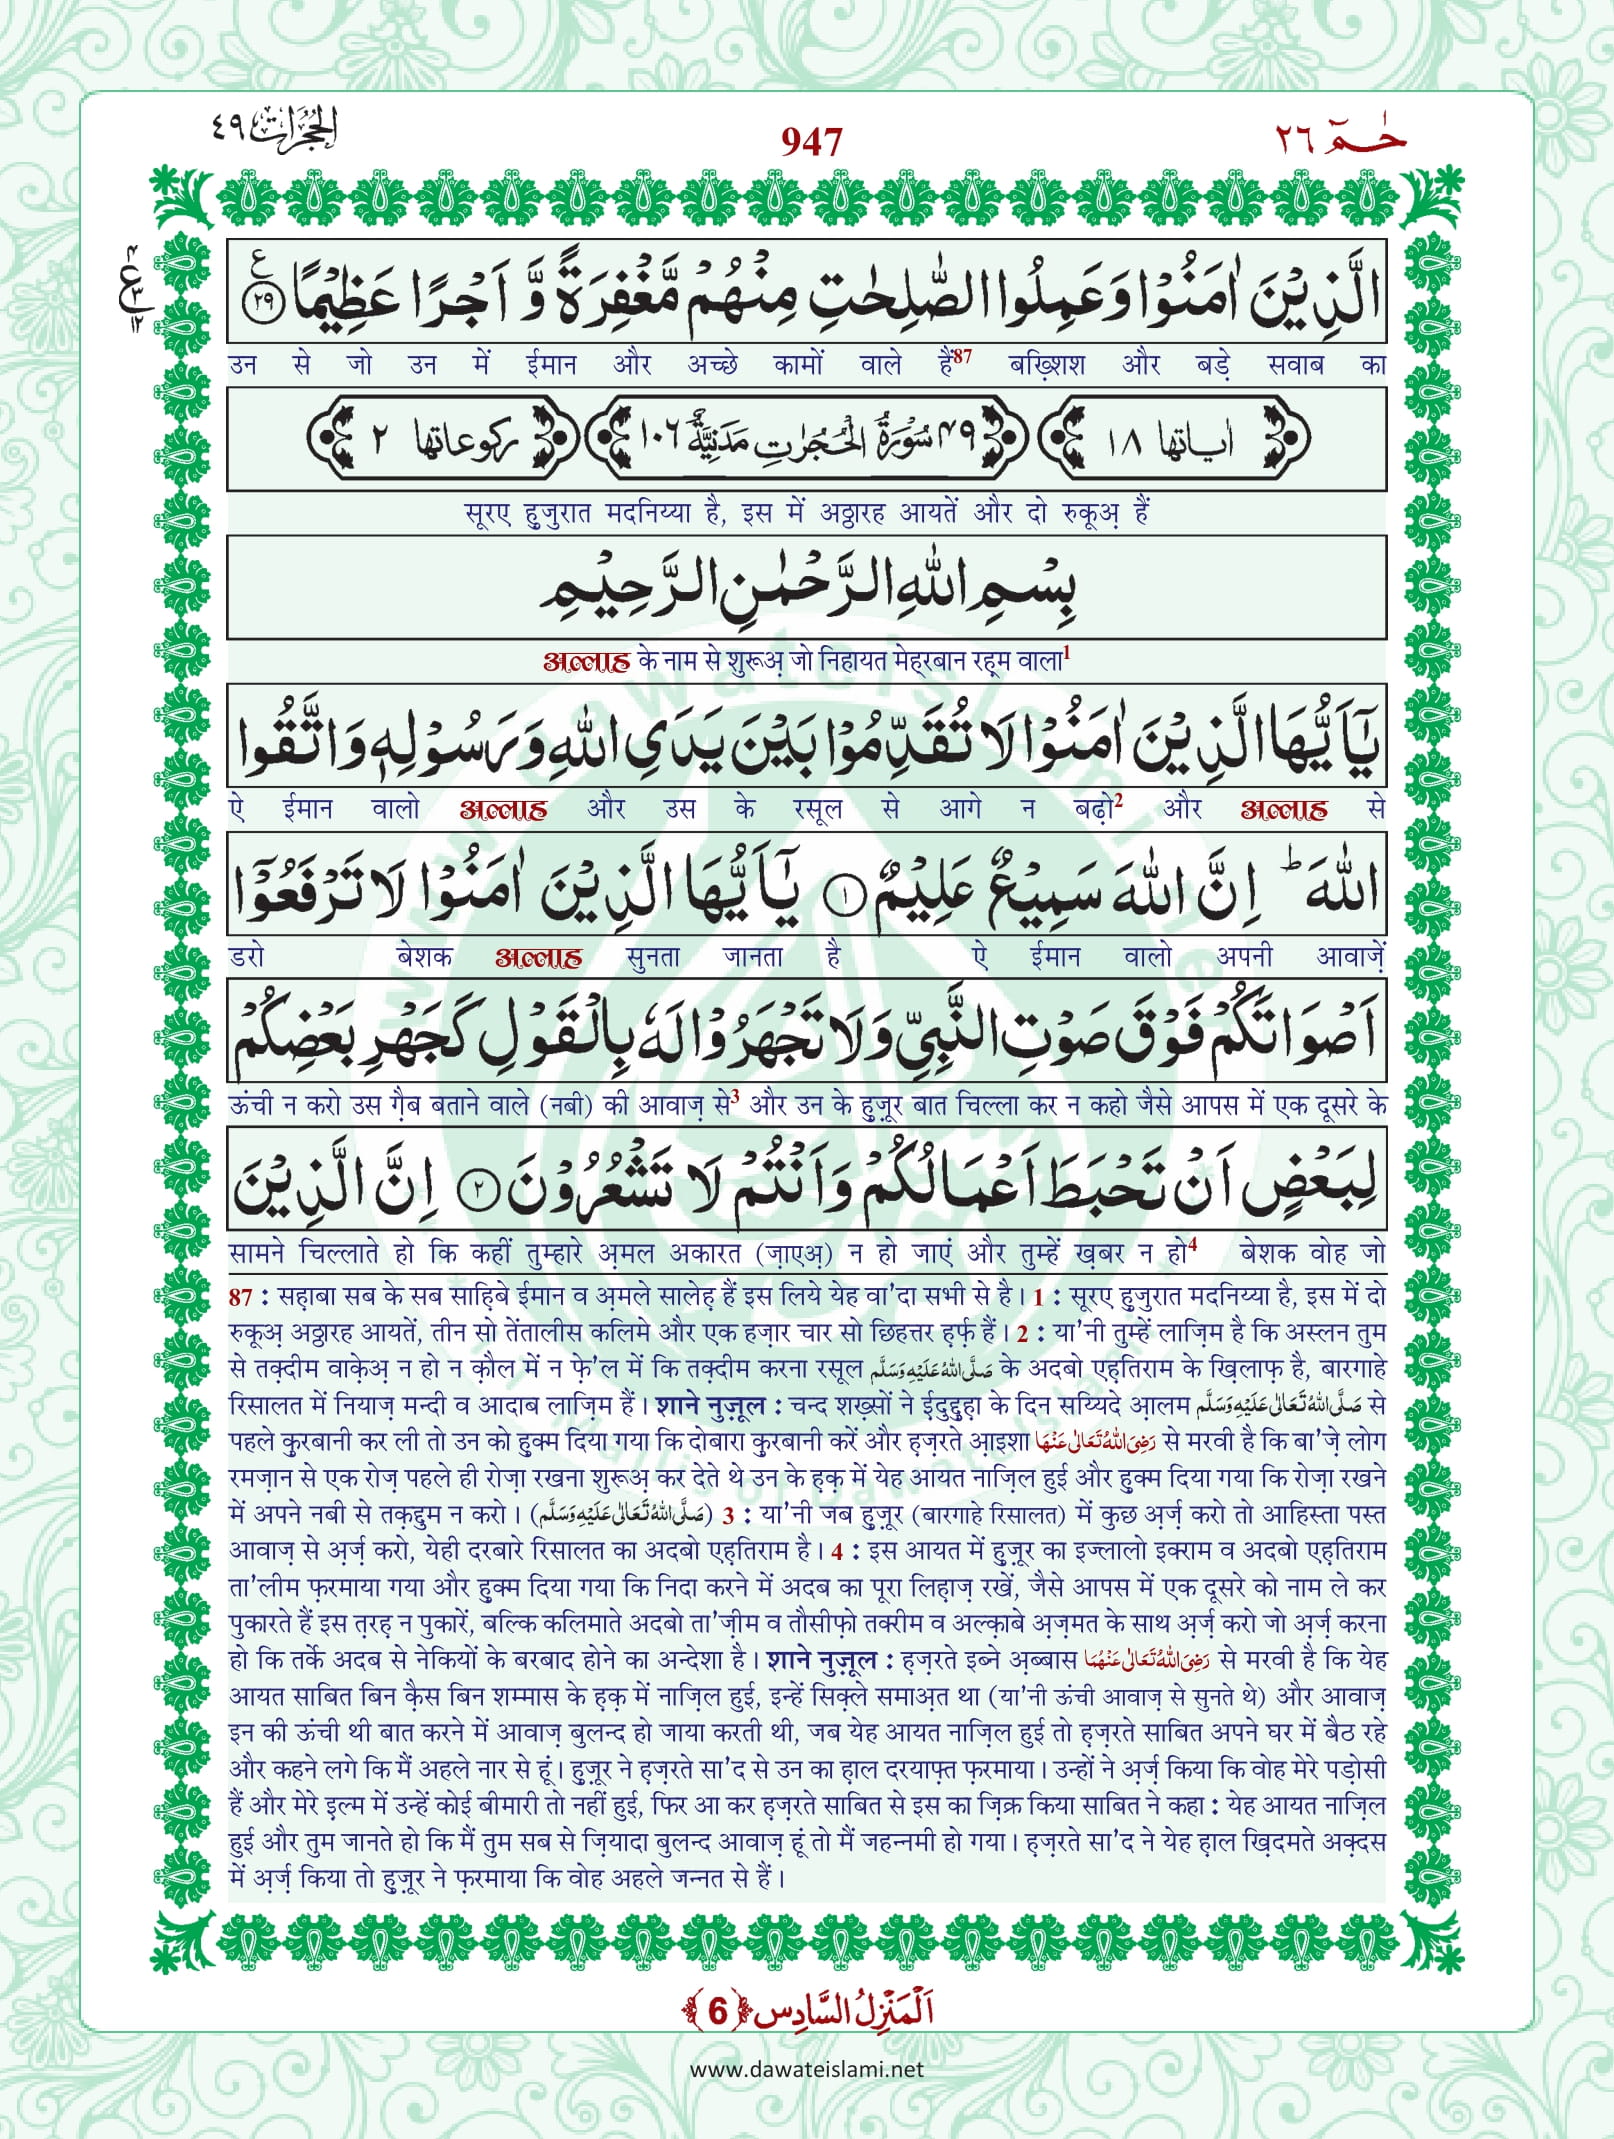 الحجرات ٤٩
947
حٰمٓ ٢٦
ع
الَّذِيْنَ اٰمَنُوْا وَ عَمِلُوا الصّٰلِحٰتِ مِنْهُمْ مَّغْفِرَةً وَّ اَجْرًا عَظِيْمًا ﴿٢٩﴾
उन से जो उन में ईमान और अच्छे कामों वाले हैं87 बख़्शिश और बड़े सवाब का
اٰیاتها ١٨
٤٩ سُوْرَةُ الْحُجُرٰتِ مَدَنِيَّةٌ ١٠٦
ركوعاتها ٢
सूरए हुजुरात मदनिय्या है, इस में अठ्ठारह आयतें और दो रुकूअ़ हैं
بِسْمِ اللّٰهِ الرَّحْمٰنِ الرَّحِيْمِ
अल्लाह के नाम से शुरूअ़ जो निहायत मेह्रबान रह़्म वाला1
يٰۤاَيُّهَا الَّذِيْنَ اٰمَنُوْا لَا تُقَدِّمُوْا بَيْنَ يَدَيِ اللّٰهِ وَ رَسُوْلِهٖ وَ اتَّقُوا
ऐ ईमान वालो अल्लाह और उस के रसूल से आगे न बढ़ो2 और अल्लाह से
اللّٰهَ ؕ اِنَّ اللّٰهَ سَمِيْعٌ عَلِيْمٌ ﴿١﴾ يٰۤاَيُّهَا الَّذِيْنَ اٰمَنُوْا لَا تَرْفَعُوْۤا
डरो बेशक अल्लाह सुनता जानता है ऐ ईमान वालो अपनी आवाज़ें
اَصْوَاتَكُمْ فَوْقَ صَوْتِ النَّبِيِّ وَ لَا تَجْهَرُوْا لَهٗ بِالْقَوْلِ كَجَهْرِ بَعْضِكُمْ
ऊंची न करो उस ग़ैब बताने वाले (नबी) की आवाज़ से3 और उन के हुज़ूर बात चिल्ला कर न कहो जैसे आपस में एक दूसरे के
لِبَعْضٍ اَنْ تَحْبَطَ اَعْمَالُكُمْ وَ اَنْتُمْ لَا تَشْعُرُوْنَ ﴿٢﴾ اِنَّ الَّذِيْنَ
सामने चिल्लाते हो कि कहीं तुम्हारे अ़मल अकारत (ज़ाएअ़) न हो जाएं और तुम्हें ख़बर न हो4 बेशक वोह जो
87 : सह़ाबा सब के सब साह़िबे ईमान व अ़मले सालेह़ हैं इस लिये येह वा'दा सभी से है। 1 : सूरए हुजुरात मदनिय्या है, इस में दो
रुकूअ़ अठ्ठारह आयतें, तीन सो तेंतालीस कलिमे और एक हज़ार चार सो छिहत्तर ह़र्फ़ हैं। 2 : या'नी तुम्हें लाज़िम है कि अस्लन तुम
से तक़्दीम वाक़ेअ़ न हो न क़ौल में न फ़े'ल में कि तक़्दीम करना रसूल صَلَّى اللهُ عَلَيْهِ وَسَلَّم के अदबो एह़तिराम के ख़िलाफ़ है, बारगाहे
रिसालत में नियाज़ मन्दी व आदाब लाज़िम हैं। शाने नुज़ूल : चन्द शख़्सों ने ईदुद्दुह़ा के दिन सय्यिदे आ़लम صَلَّى اللهُ تَعَالٰى عَلَيْهِ وَسَلَّم से
पहले कुरबानी कर ली तो उन को हुक्म दिया गया कि दोबारा कुरबानी करें और ह़ज़रते आ़इशा رَضِىَ اللهُ تَعَالٰى عَنْهَا से मरवी है कि बा'ज़े लोग
रमज़ान से एक रोज़ पहले ही रोज़ा रखना शुरूअ़ कर देते थे उन के ह़क़ में येह आयत नाज़िल हुई और हुक्म दिया गया कि रोज़ा रखने
में अपने नबी से तक़द्दुम न करो। (صَلَّى اللهُ تَعَالٰى عَلَيْهِ وَسَلَّم) 3 : या'नी जब हुज़ूर (बारगाहे रिसालत) में कुछ अ़र्ज़ करो तो आहिस्ता पस्त
आवाज़ से अ़र्ज़ करो, येही दरबारे रिसालत का अदबो एह़तिराम है। 4 : इस आयत में हुज़ूर का इज्लालो इक्राम व अदबो एह़तिराम
ता'लीम फ़रमाया गया और हुक्म दिया गया कि निदा करने में अदब का पूरा लिह़ाज़ रखें, जैसे आपस में एक दूसरे को नाम ले कर
पुकारते हैं इस त़रह़ न पुकारें, बल्कि कलिमाते अदबो ता'ज़ीम व तौसीफ़ो तक्रीम व अल्क़ाबे अज़मत के साथ अ़र्ज़ करो जो अ़र्ज़ करना
हो कि तर्के अदब से नेकियों के बरबाद होने का अन्देशा है। शाने नुज़ूल : ह़ज़रते इब्ने अ़ब्बास رَضِىَ اللهُ تَعَالٰى عَنْهُمَا से मरवी है कि येह
आयत साबित बिन क़ैस बिन शम्मास के ह़क़ में नाज़िल हुई, इन्हें सिक़्ले समाअ़त था (या'नी ऊंची आवाज़ से सुनते थे) और आवाज़
इन की ऊंची थी बात करने में आवाज़ बुलन्द हो जाया करती थी, जब येह आयत नाज़िल हुई तो ह़ज़रते साबित अपने घर में बैठ रहे
और कहने लगे कि मैं अहले नार से हूं। हुज़ूर ने ह़ज़रते सा'द से उन का ह़ाल दरयाफ़्त फ़रमाया। उन्हों ने अ़र्ज़ किया कि वोह मेरे पड़ोसी
हैं और मेरे इल्म में उन्हें कोई बीमारी तो नहीं हुई, फिर आ कर ह़ज़रते साबित से इस का ज़िक्र किया साबित ने कहा : येह आयत नाज़िल
हुई और तुम जानते हो कि मैं तुम सब से ज़ियादा बुलन्द आवाज़ हूं तो मैं जहन्नमी हो गया। ह़ज़रते सा'द ने येह ह़ाल ख़िदमते अक़्दस
में अ़र्ज़ किया तो हुज़ूर ने फ़रमाया कि वोह अहले जन्नत से हैं।
اَلْمَنْزِلُ السَّادِس ﴿6﴾
www.dawateislami.net